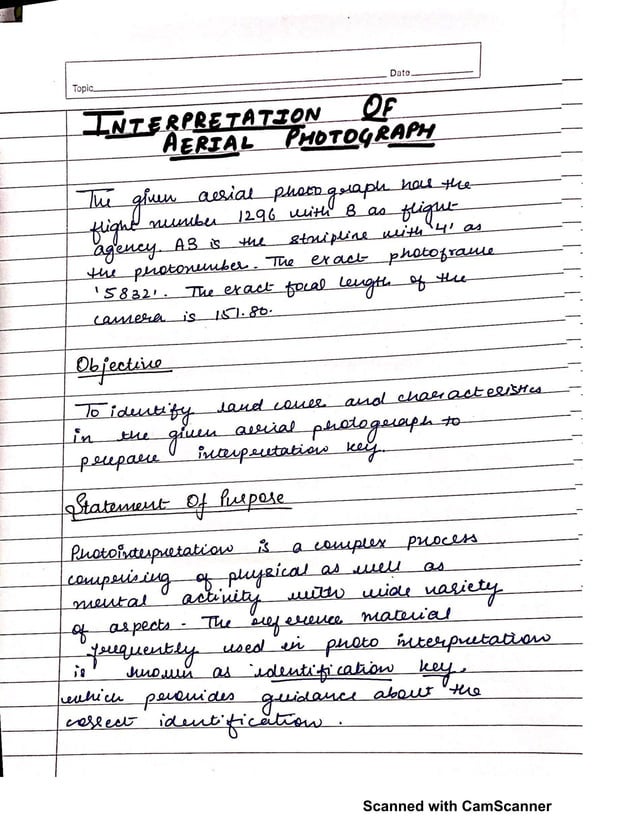 Topic
Date
INTERPRETATION OF
AERIAL PHOTOGRAPH
The given aerial photograph has the
flight number 1296 with B as flight
agency. A3 is the stripline with '4' as
the photonumber. The exact photoframe
'5832'. The exact focal length of the
camera is 151.80.
Objective
To identify land cover and characteristics
in the given aerial photograph to
prepare interpretation key.
Statement Of Purpose
Photointerpretation is a complex process
comprising of physical as well as
mental activity with wide variety
of aspects. The reference material
frequently used in photo interpretation
is known as identification key,
which provides guidance about the
correct identification.
Scanned with CamScanner